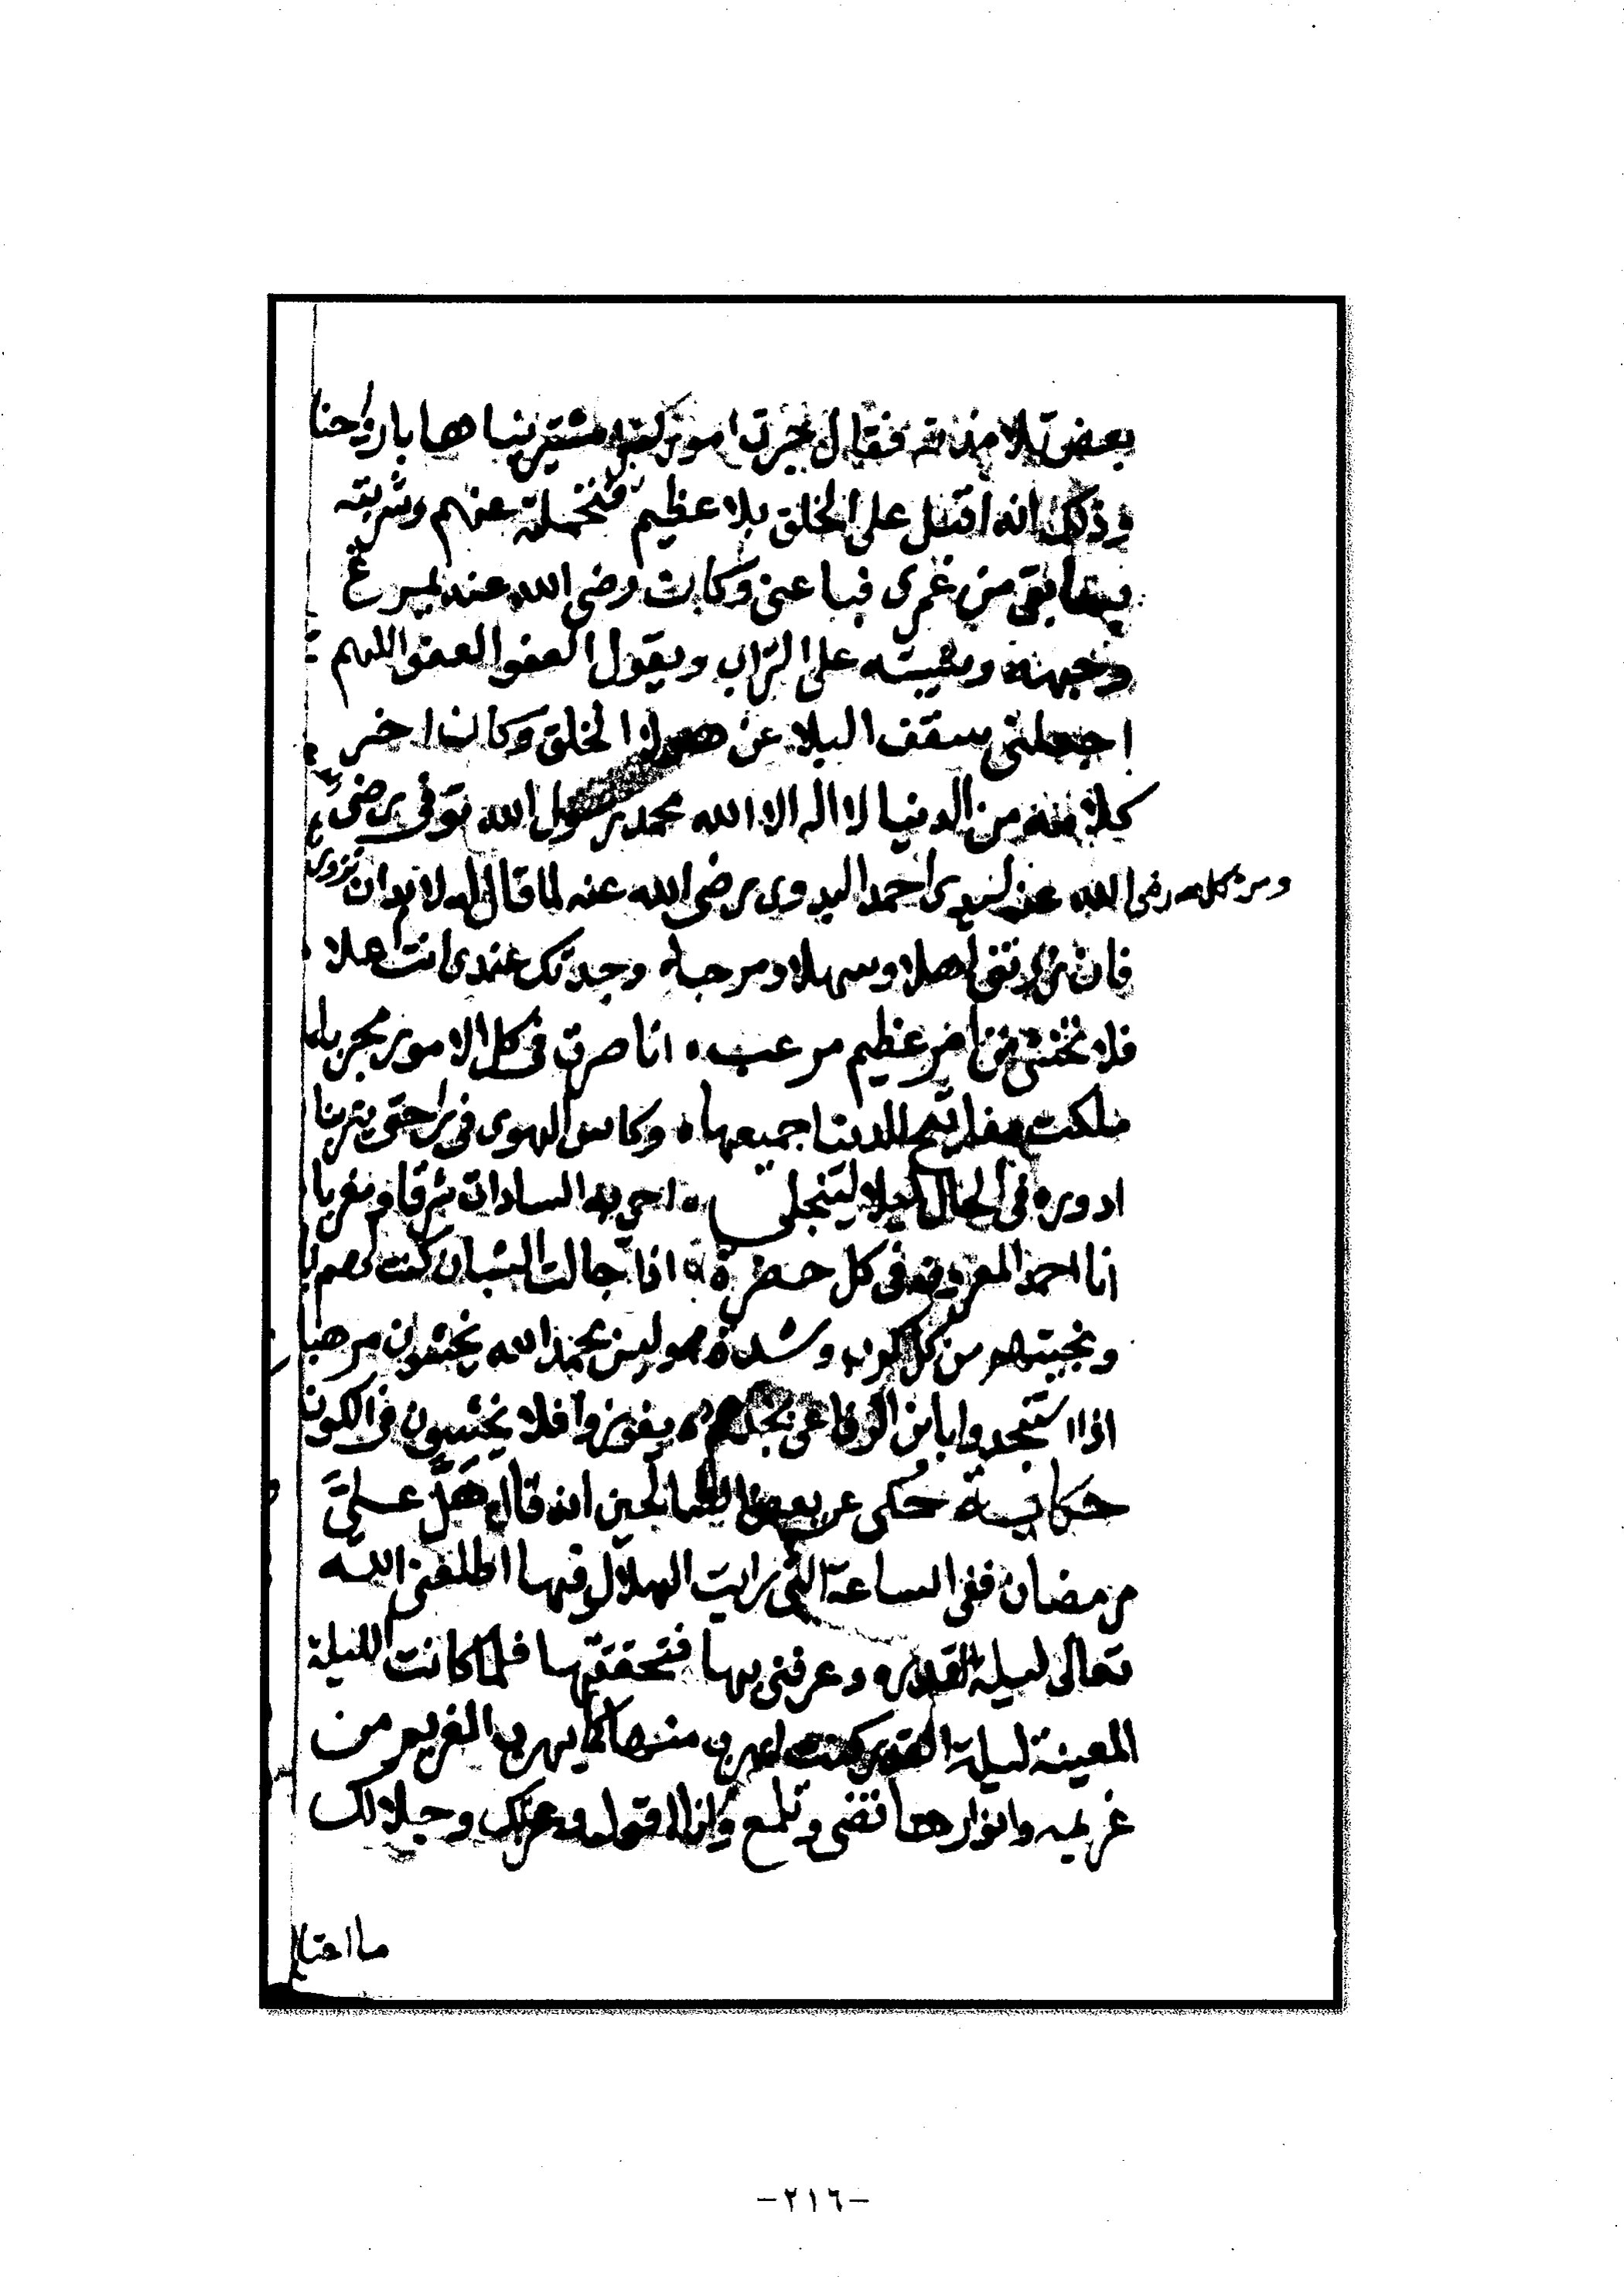 بعض تلامذته فقال جرت امور كثيرة اشتريناها بارواحنا
وذلك انه اقبل على الخلق بلا عظيم فتحملته عنهم وشريته
بما بقى من عمرى فباعنى وكان رضى الله عنه يمرغ
وجهه وشيبته على التراب ويقول العفو العفو اللهم
اجعلنى سقف البلا عن هولا الخلق وكان اخر
كلامه من الدنيا لا اله الا الله محمد رسول الله توفى رضى
ومن كلامه رضى الله عنه لسيدى احمد البدوى رضى الله عنه لما قال له لا بد ان تزورى
فان زرتنى اهلا وسهلا ومرحبا وجدتك عندى انت اهلا
فلا تختشى من امر عظيم مرعب انا صرت فى كل الامور مجربا
ملكت مفاتيح الدنيا جميعها وكاس الهوى فى راحتى
ادوره فى الحال ليلا لينجلى السادات شرقا ومغربا
انا احمد المعروف فى كل حضرة اذا جالت الشبان كنت لهم ابا
ونجيتهم من كل كرب وشدة وليس بحمد الله يخشون مرهبا
اذا استنجدوا بابن الرفاعى نجدهم يفوزوا فلا يخشون فى الكون
حكاية حكى عن بعض الصالحين انه قال هل على
رمضان ففى الساعة التى رايت الهلال فيها اطلعنى الله
تعالى ليلة القدر وعرفنى بها فتحققتها فلما كانت الليلة
المعينة ليلة القدر كنت اهرب منها كما يهرب الغريم من
غريمه وانوارها تضى وتلمع وانا اقول وعزتك وجلالك
ما احتاج
-٢١٦-